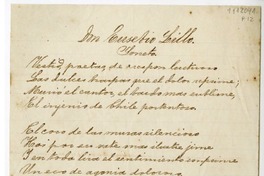 Don Eusebio Lillo.
Soneto
poetas de crespon luctuoso
Las dulces trompas que el dolor reprime;
Murió el cantor, el bardo mas sublime,
El injenio de Chile portentoso.
El coro de las musas silencioso
Hoi por ser este mas ilustre jime
I en toda lira el sentimiento imprime
Un eco de agonia doloroso